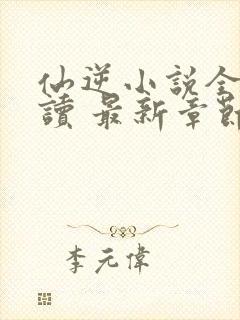 仙逆小說全
讀 最新章節
李元偉